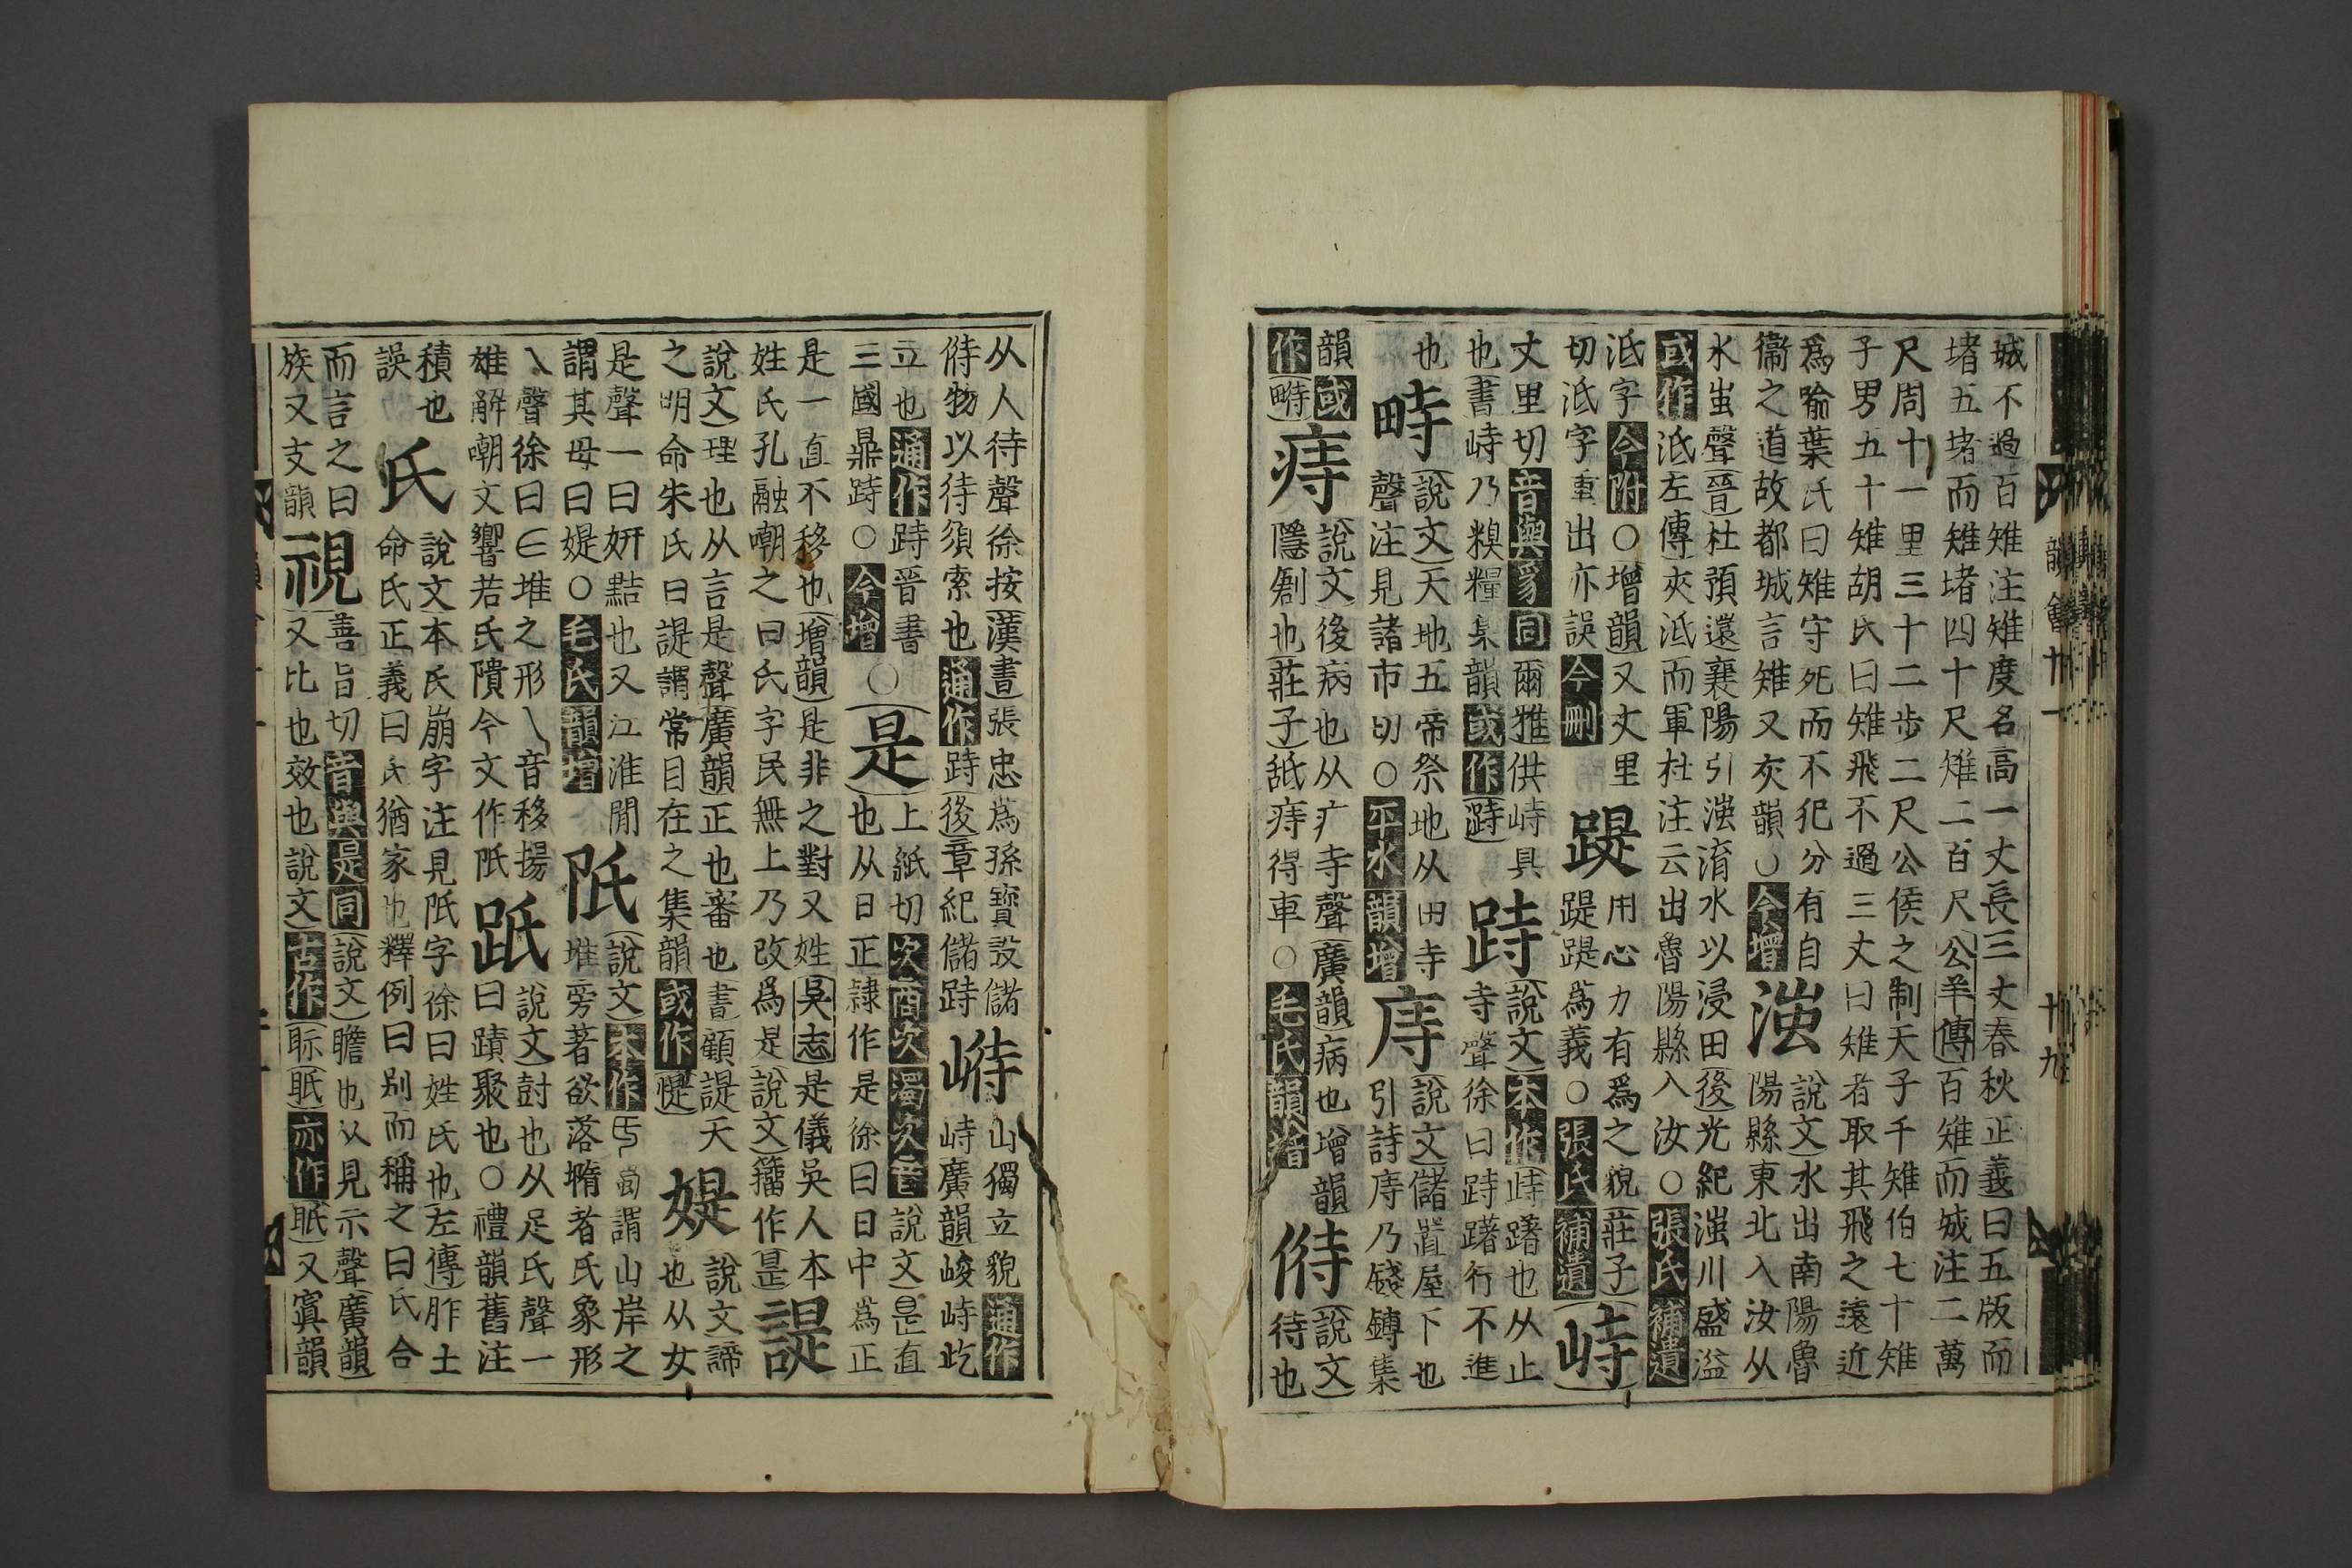 城不過百雉注雉度名高一丈長三丈春秋正義曰五版而
堵五堵而雉堵四十尺雉二百尺公羊傳百雉而城注二萬
尺周十一里三十二步二尺公侯之制天子千雉伯七十雉
子男五十雉胡氏曰雉飛不過三丈曰雉者取其飛之遠近
爲喻葉氏曰雉守死而不犯分有自
衞之道故都城言雉又灰韻○今增
滍
說文水出南陽魯
陽縣東北入汝从
水蚩聲晉杜預遏襄陽引滍淯水以浸田後光紀滍川盛溢
或作泜左傳夾泜而軍杜注云出魯陽縣入汝○張氏補遺
泜字今附○增韻又丈里
切泜字重出亦誤今刪
踶
用心力有爲之貌莊子
踶踶爲義○張氏補遺
峙
丈里切音與豸同爾雅供峙具
也書峙乃糗糧集韻或作跱
跱
說文本作峙躇也从止
寺聲徐曰跱躇行不進
也
畤
說文天地五帝祭地从田寺
聲注見諸市切○平水韻增
庤
說文儲置屋下也
引詩庤乃錢鎛集
韻或
作畤
痔
說文後病也从疒寺聲廣韻病也增韻
隱創也莊子舐痔得車○毛氏韻增
偫
說文
待也
韻會十一
十九
从人待聲徐按漢書張忠爲孫寶設儲
偫物以待須索也通作跱後章紀儲跱
㟴
山獨立貌通作
峙廣韻峻峙屹
立也通作跱晉書
三國鼎跱○今增
○是
上紙切次商次濁次音說文昰直
也从日正隸作是徐曰日中爲正
是一直不移也增韻是非之對又姓吳志是儀吳人本
姓氏孔融嘲之曰氏字民無上乃改爲是說文籀作昰
諟
說文理也从言是聲廣韻正也審也書顧諟天
之明命朱氏曰諟謂常目在之集韻或作惿
媞
說文諦
也从女
是聲一曰妍黠也又江淮閒
謂其母曰媞○毛氏韻增
阺
說文本作氏蜀謂山岸之
堆旁著欲落墮者氏象形
乀聲徐曰堆之形乀音移揚
雄解嘲文響若氏隤今文作阺
跂
說文尌也从足氏聲一
曰蹟聚也○禮韻舊注
積也
誤
氏
說文本氏崩字注見阺字徐曰姓氏也左傳胙土
命氏正義曰氏猶家也釋例曰别而稱之曰氏合
而言之曰
族又支韻
視
善旨切音與是同說文瞻也从見示聲廣韻
又比也效也說文古作眎眡亦作眂又寘韻